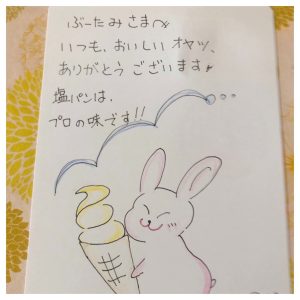 ぶーたみさまへ
いつも、おいしいオヤツ、
ありがとうございます♪
塩パンは、
プロの味です!!